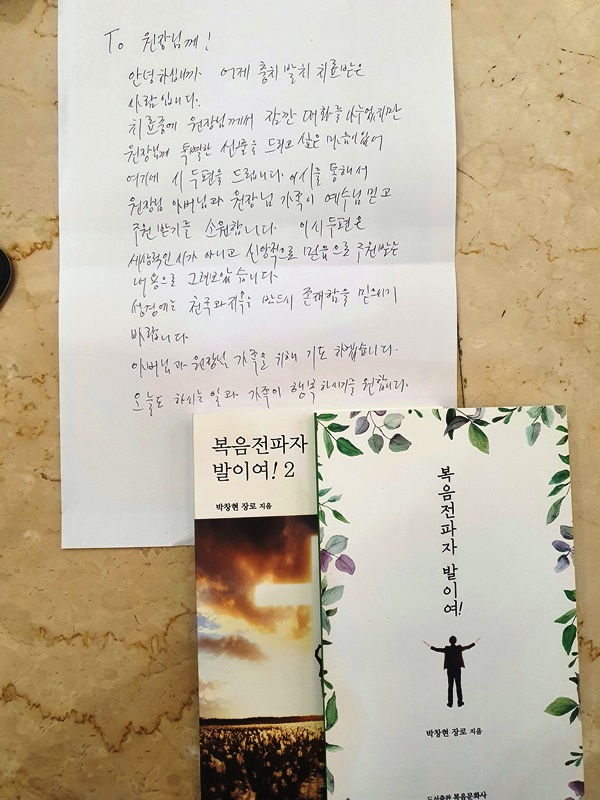 To 원장님께!
안녕하십니까. 어제 충치 발치 치료받은
사람입니다.
치료중에 원장님께서 잠깐 대화를 나누었지만
원장님께 특별한 선물을 드리고 싶은 마음이 있어
여기에 시 두편을 드립니다. 이시를 통해서
원장님 아버님과 원장님 가족이 예수님 믿고
구원받기를 소원합니다. 이시 두편은
세상적인 시가 아니고 신앙적으로 믿음으로 구원받는
내용으로 그려보았습니다.
성경에는 천국과 지옥을 반드시 존재함을 믿으시기
바랍니다.
아버님과 원장님 가족을 위해 기도 하겠습니다.
오늘도 하시는 일과 가족이 행복하시기를 원합니다.
복음전파자
발이여! 2
박창현 장로 지음
복음전파자 발이여!
박창현 장로 지음
도서출판 복음문화사